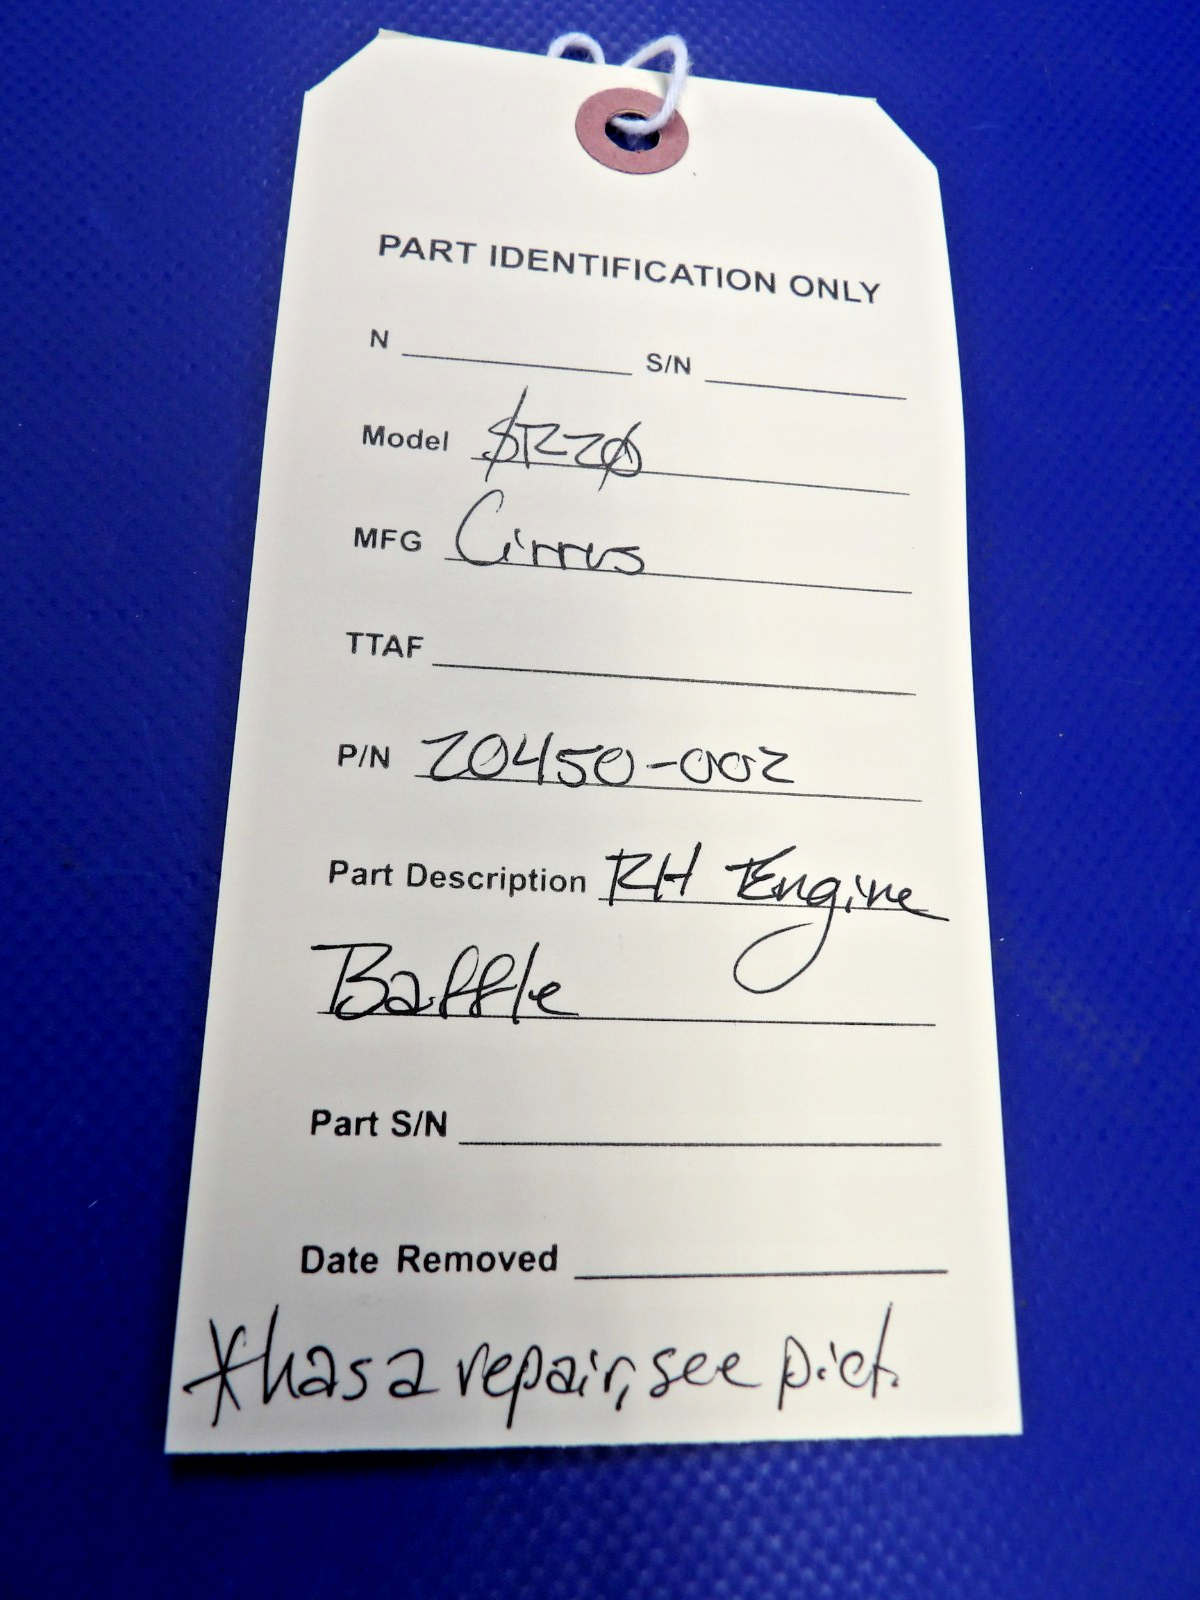 PART IDENTIFICATION ONLY
N S/N
Model SR20
MFG Cirrus
TTAF
P/N 20450-002
Part Description RH Engine
Baffle
Part S/N
Date Removed
*has a repair, see pict.